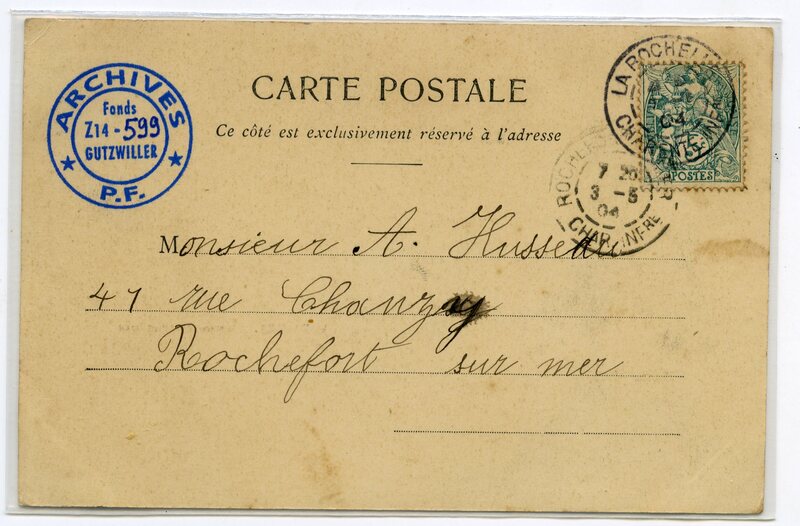 ARCHIVES
Fonds
Z14-599
GUTZWILLER
P.F.
CARTE POSTALE
Ce côté est exclusivement réservé à l'adresse
LA ROCHELLE
CHARENTE INFRE
POSTES
ROCHEFORT
7 20
3 -5
04
CHARTE INFRE
Monsieur A. Husseau
41 rue Chanzy
Rochefort sur mer